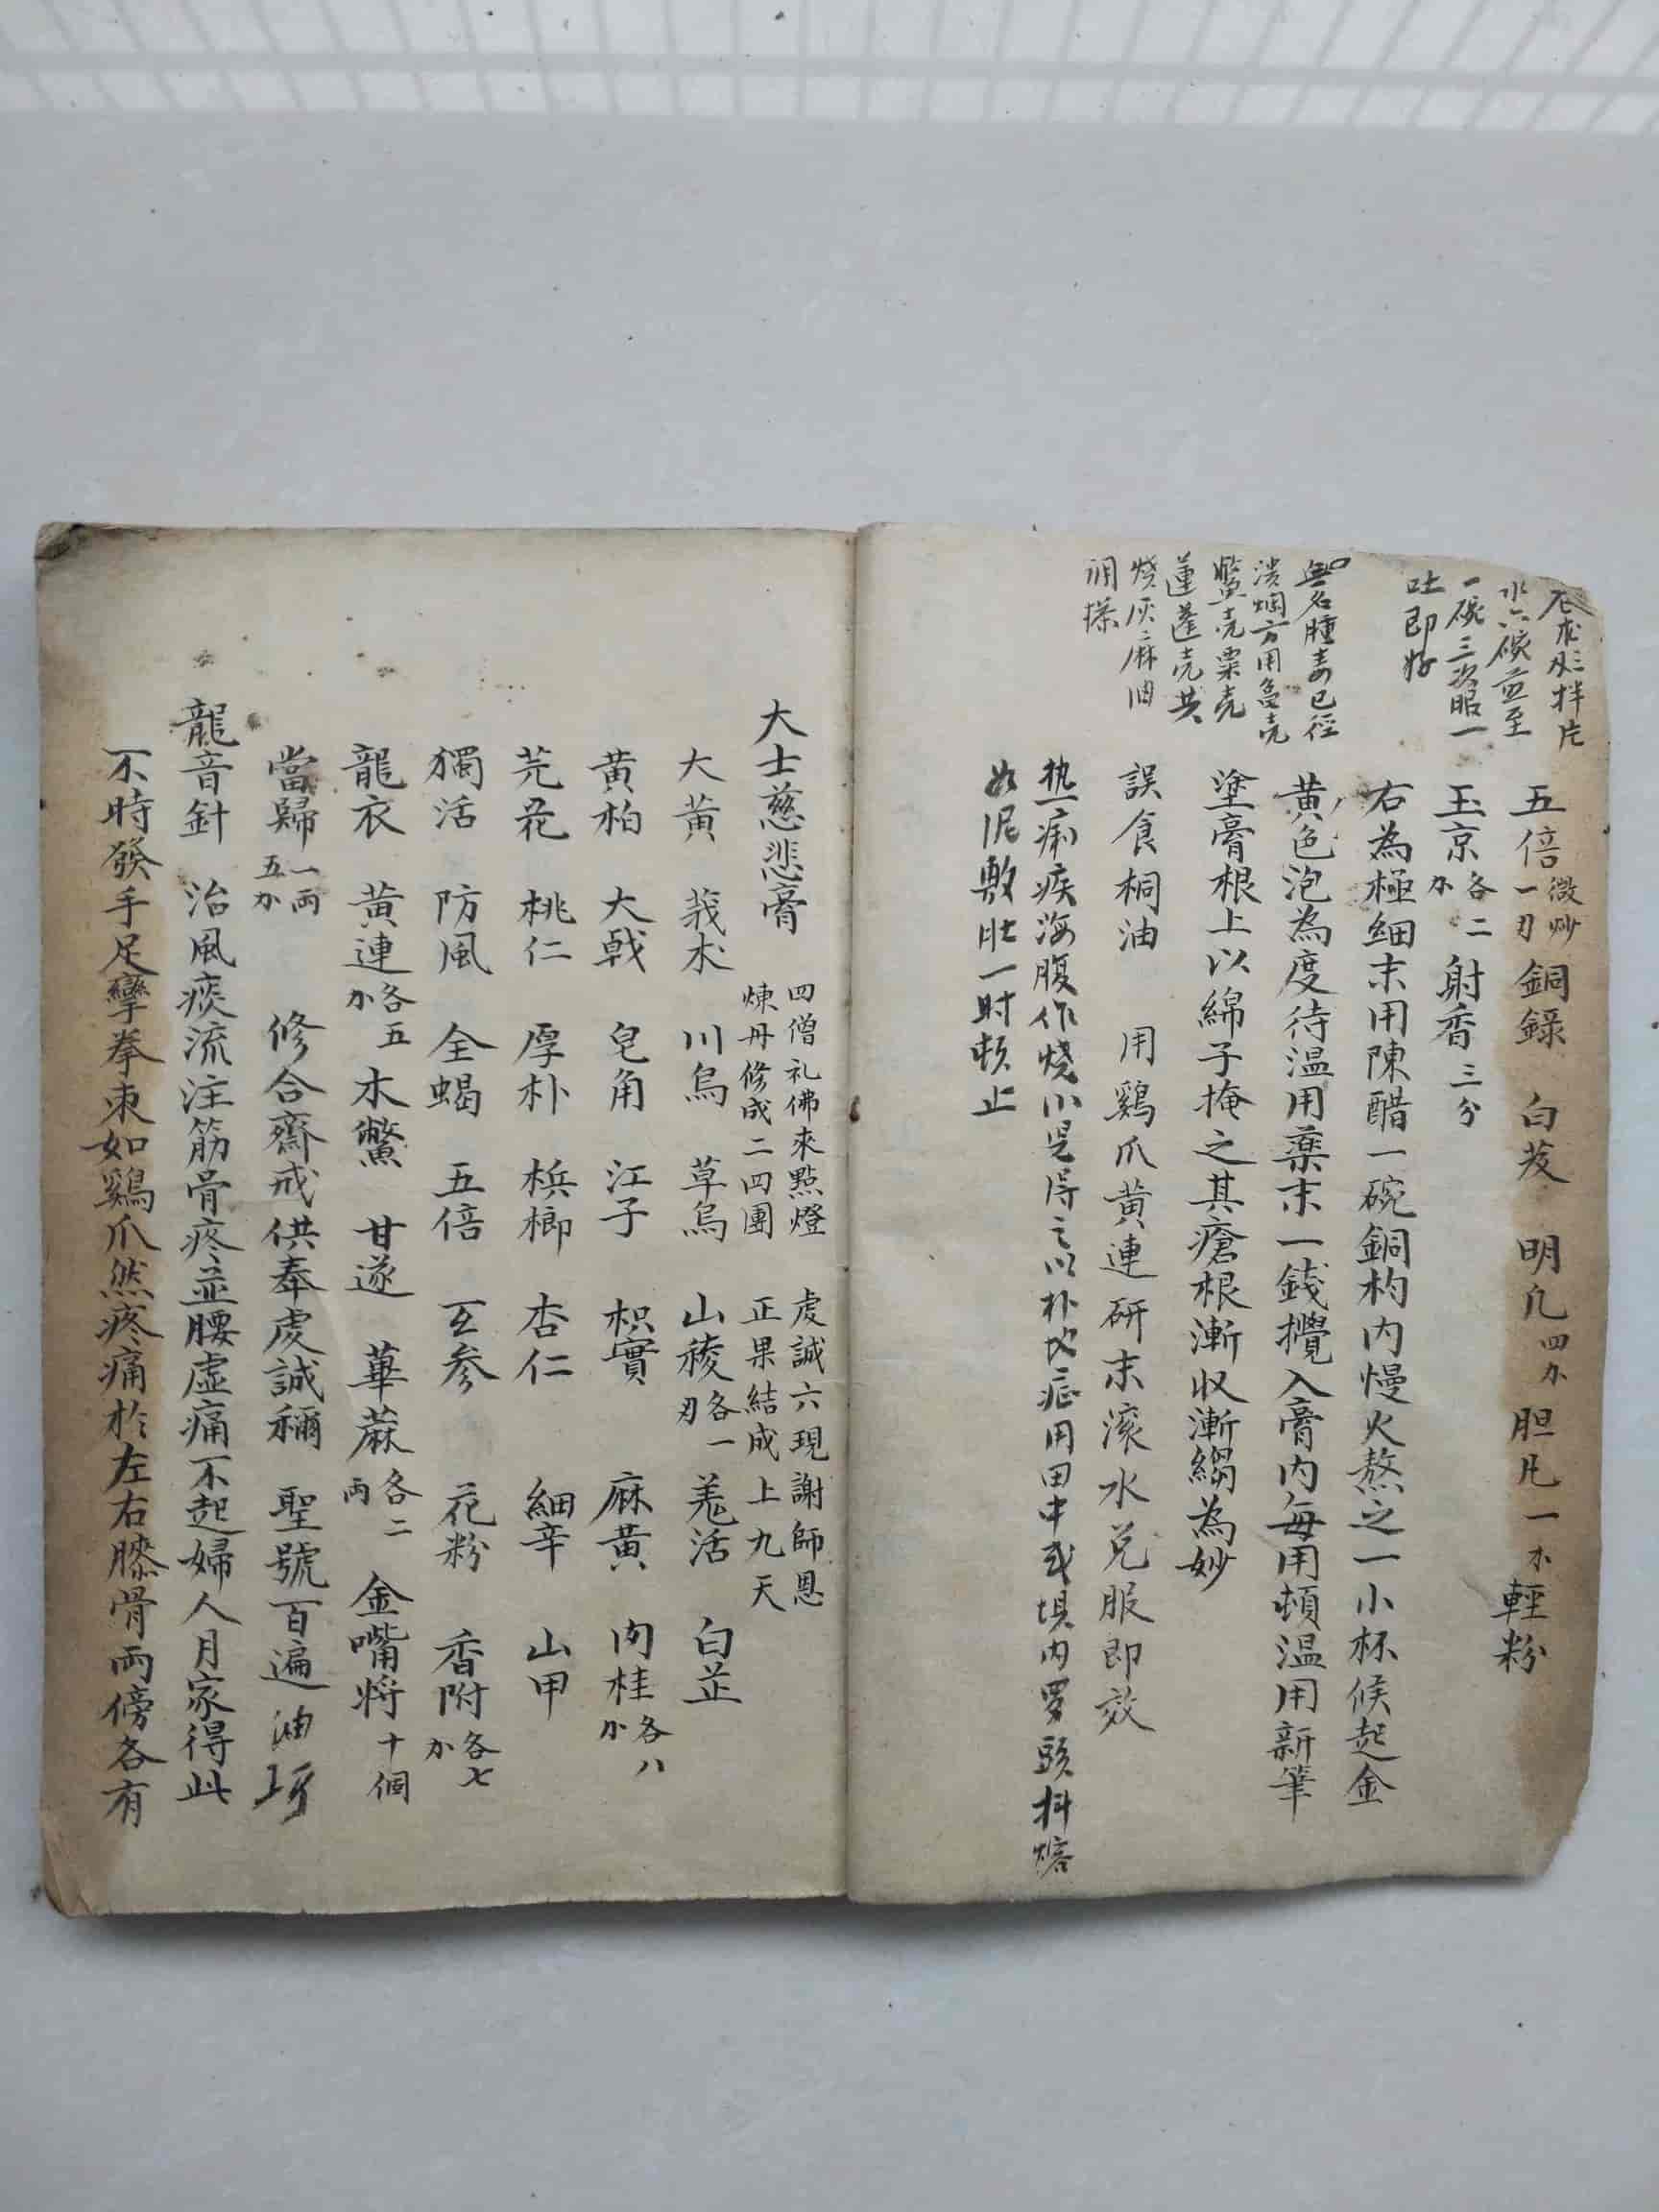 拌片
水六碗煎至
一碗三次服一
吐即好
無名腫毒已徑
潰爛方用龟壳
鱉壳栗壳
蓮蓬壳共
燒灰麻油
調搽
五倍微炒一刃銅錄 白芨 明凡四分胆凡一分輕粉
玉京各二分射香三分
右為極細末用陳醋一碗銅杓內慢火熬之一小杯候起金
黃色泡為度待温用藥末一錢攪入膏內每用頓温用新筆
塗膏根上以綿子掩之其瘡根漸収漸縐為妙
誤食桐油 用鷄爪黃連研末滚水兑服即效
热痢疾海腹作燒小便得之以朴地症用田中或垻内 頭抖熔
如泥敷肚一時頓止
大士慈悲膏 四僧礼佛來點燈煉丹修成二四團 虔誠六現謝師恩正果結成上九天
大黃 莪术 川烏 草烏 山稜各一刃羗活 白芷
黃柏 大戟 皂角 江子 枳實 麻黃 肉桂各八分
芫花 桃仁 厚朴 梹榔 杏仁 細辛 山甲
獨活 防風 全蝎 五倍 玄参 花粉 香附各七分
龍衣 黃連各五分木鱉 甘遂 萆蔴各二両 金嘴将十個
當歸一両五分 修合齋戒供奉虔誠稱 聖號百遍油
龍音針 治風痰流注筋骨疼並腰虛痛不起婦人月家得此
不時發手足攣拳束如鷄爪然疼痛於左右膝骨両傍各有